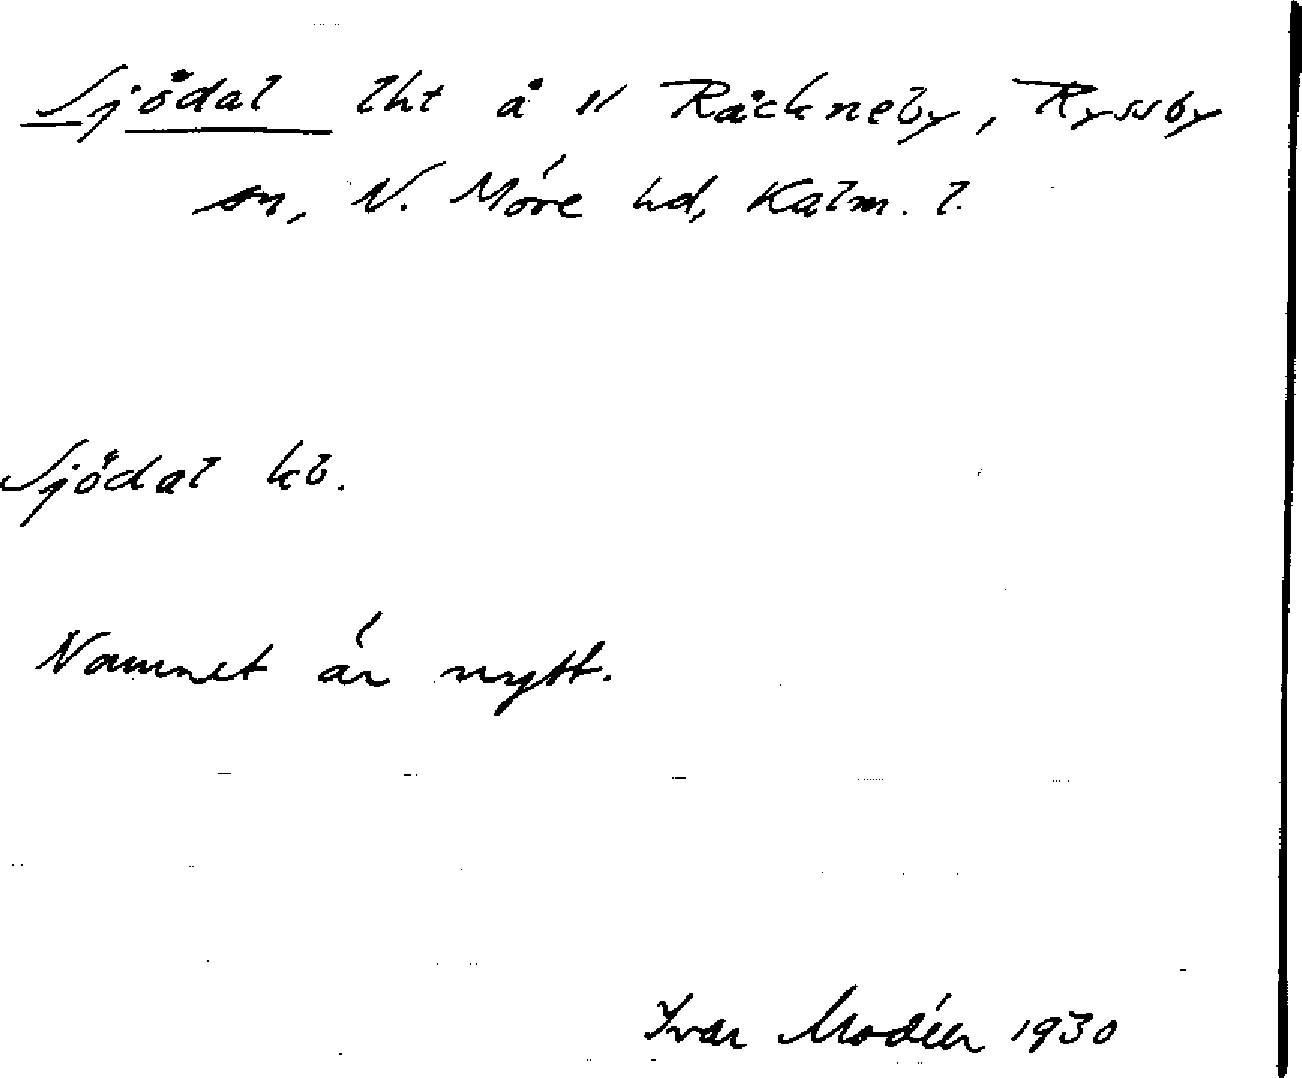 Sjödal lht å 11 Räckneby, Ryssby
sn, N. Möre hd, Kalm. l.
Sjödal kb.
Namnet är nytt.
Ivar Modéer 1930